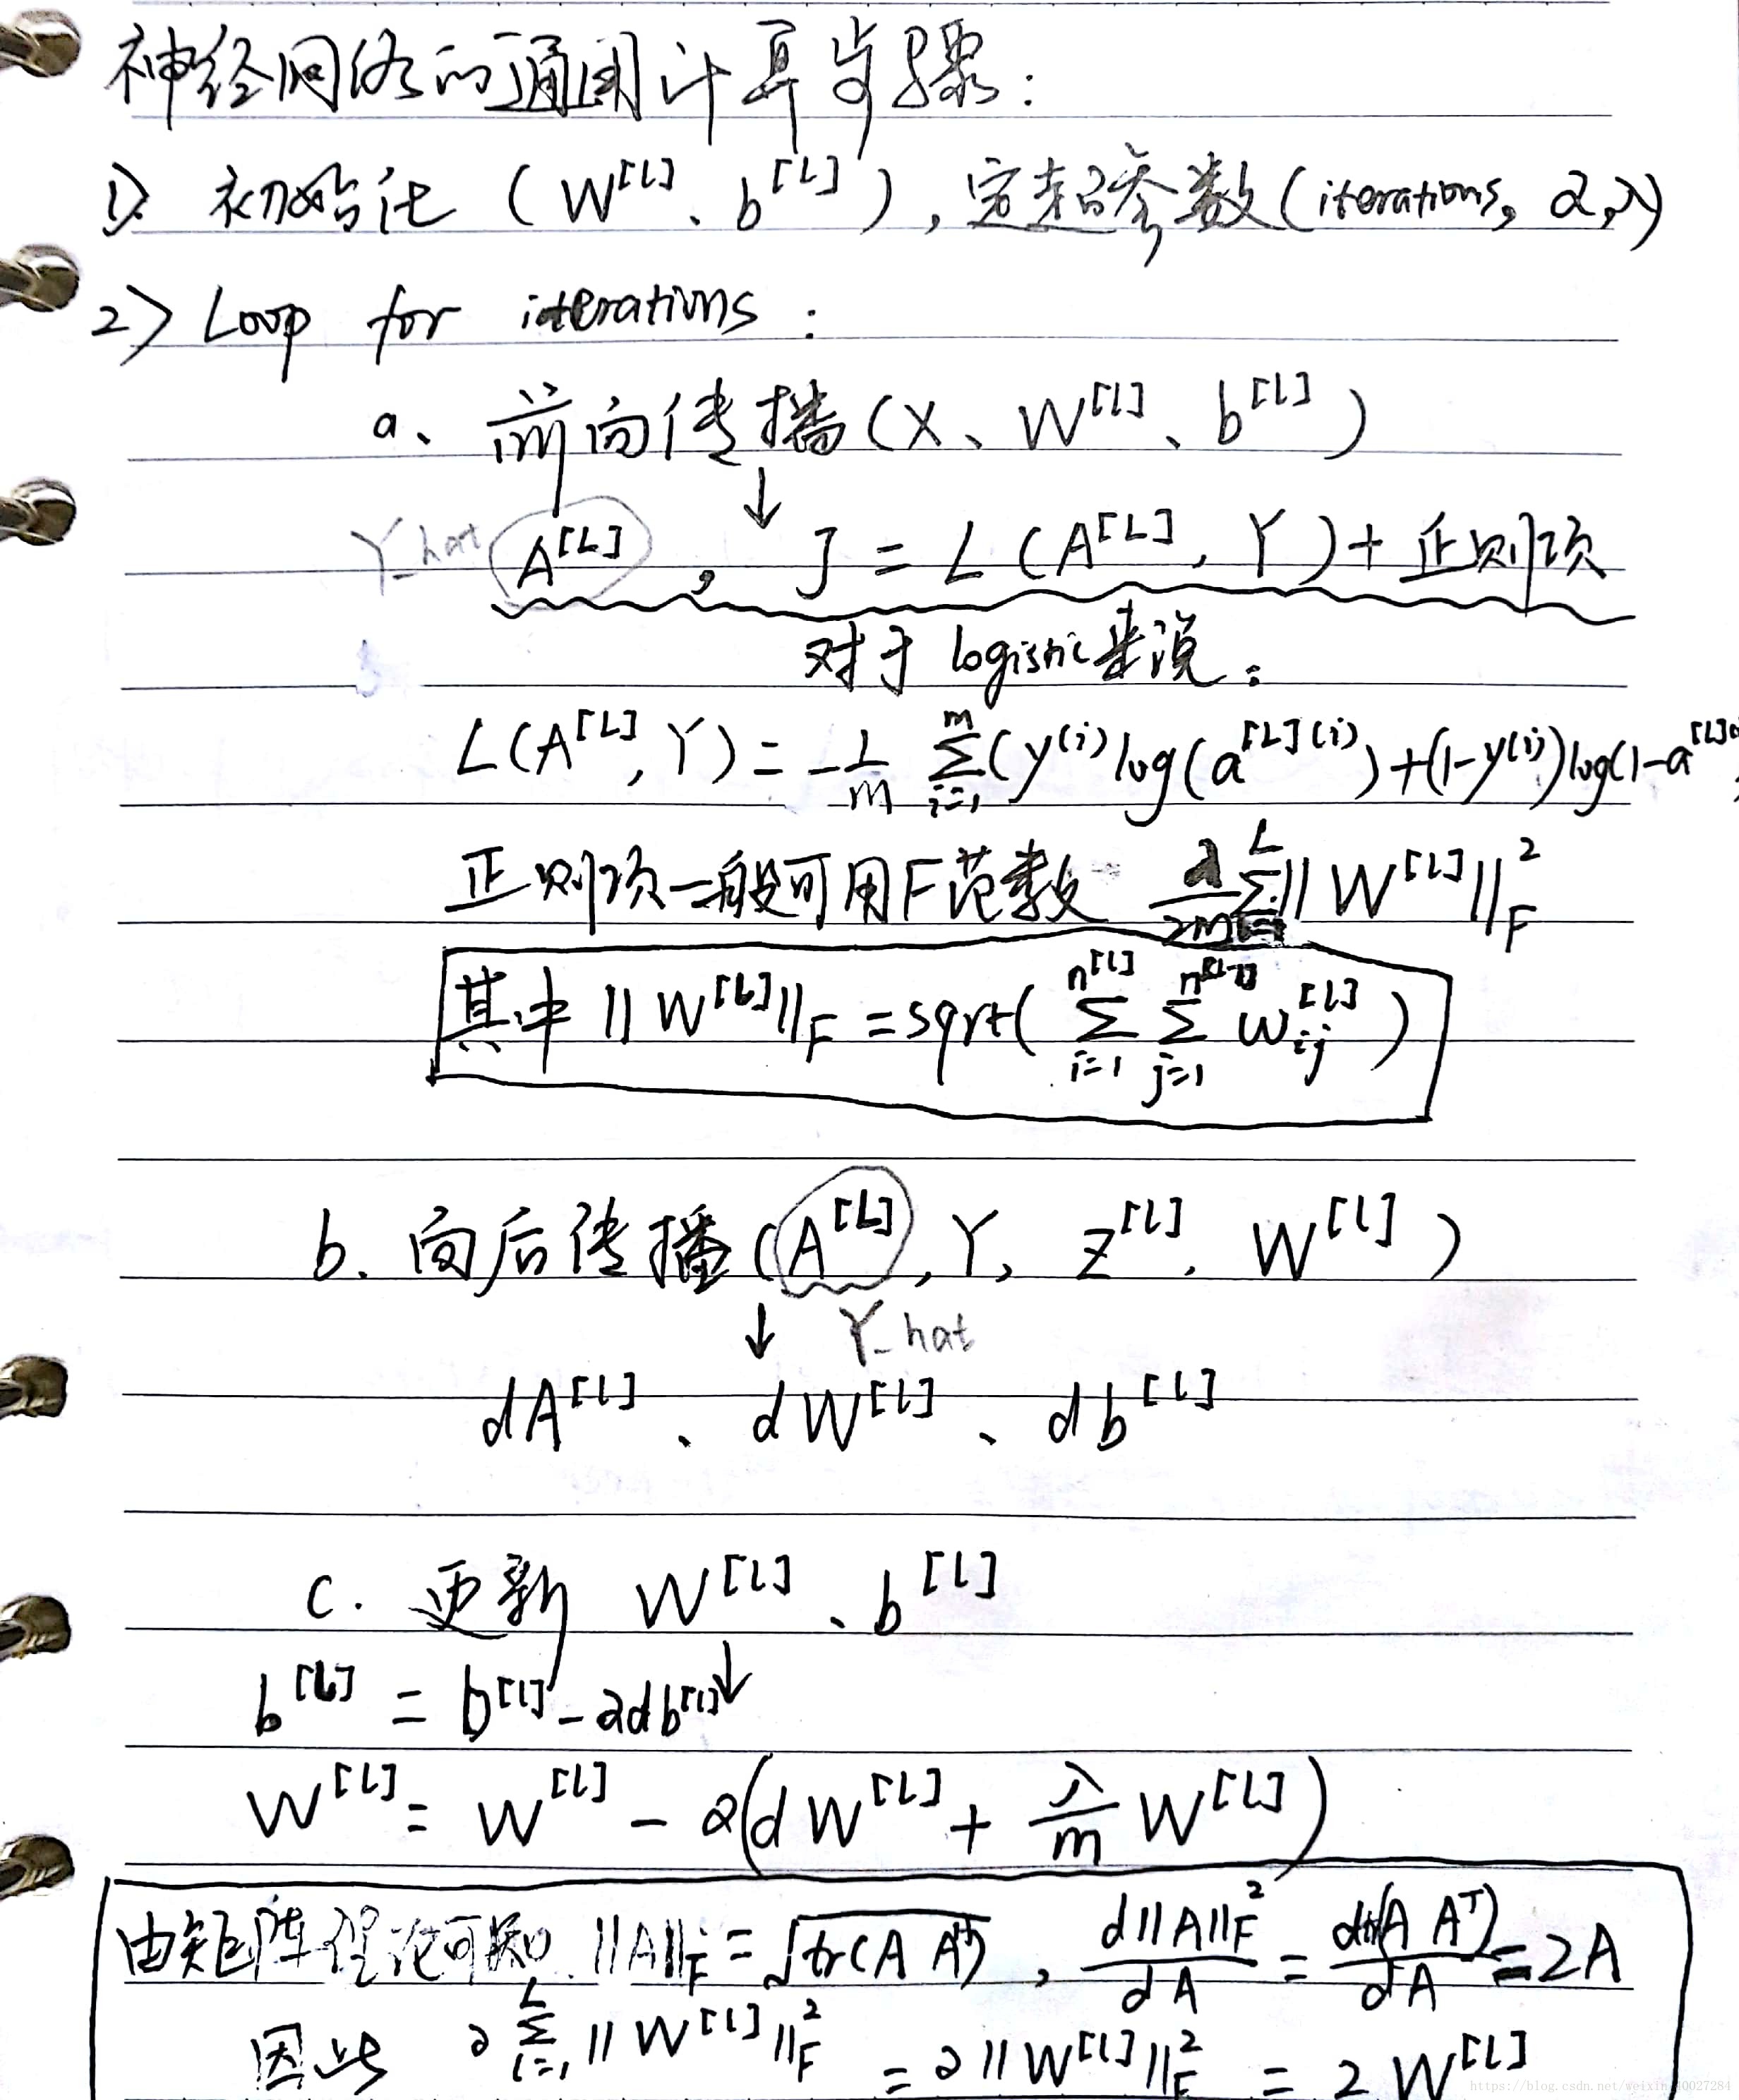 神经网络的通用计算步骤:
1> 初始化 (W^[l]、b^[l]), 定超参数(iterations, α,λ)
2> Loop for iterations:
a、前向传播(X、W^[l]、b^[l])
↓
Y_hat A^[L], J = L(A^[L], Y) + 正则项
对于 logistic来说:
L(A^[L], Y) = -1/m ∑_{i=1}^{m}(y^(i)log(a^[L](i))+(1-y^(i))log(1-a^[L](i
正则项一般可用F范数 λ/2m ∑_{l=1}^{L}||W^[l]||_F^2
其中 ||W^[l]||_F = sqrt( ∑_{i=1}^{n^[l]} ∑_{j=1}^{n^[l-1]} w_ij^[l] )
b. 向后传播(A^[L], Y, Z^[l], W^[l])
↓ Y_hat
dA^[l]、dW^[l]、db^[l]
c. 更新 W^[l]、b^[l]
↓
b^[l] = b^[l] - αdb^[l]
W^[l] = W^[l] - α(dW^[l] + λ/m W^[l])
由矩阵理论可知. ||A||_F = √tr(A A^T), d||A||_F^2/dA = dtr(A A^T)/dA = 2A
因此 ∂∑_{l=1}^{L}||W^[l]||_F^2 = ∂||W^[l]||_F^2 = 2W^[l]